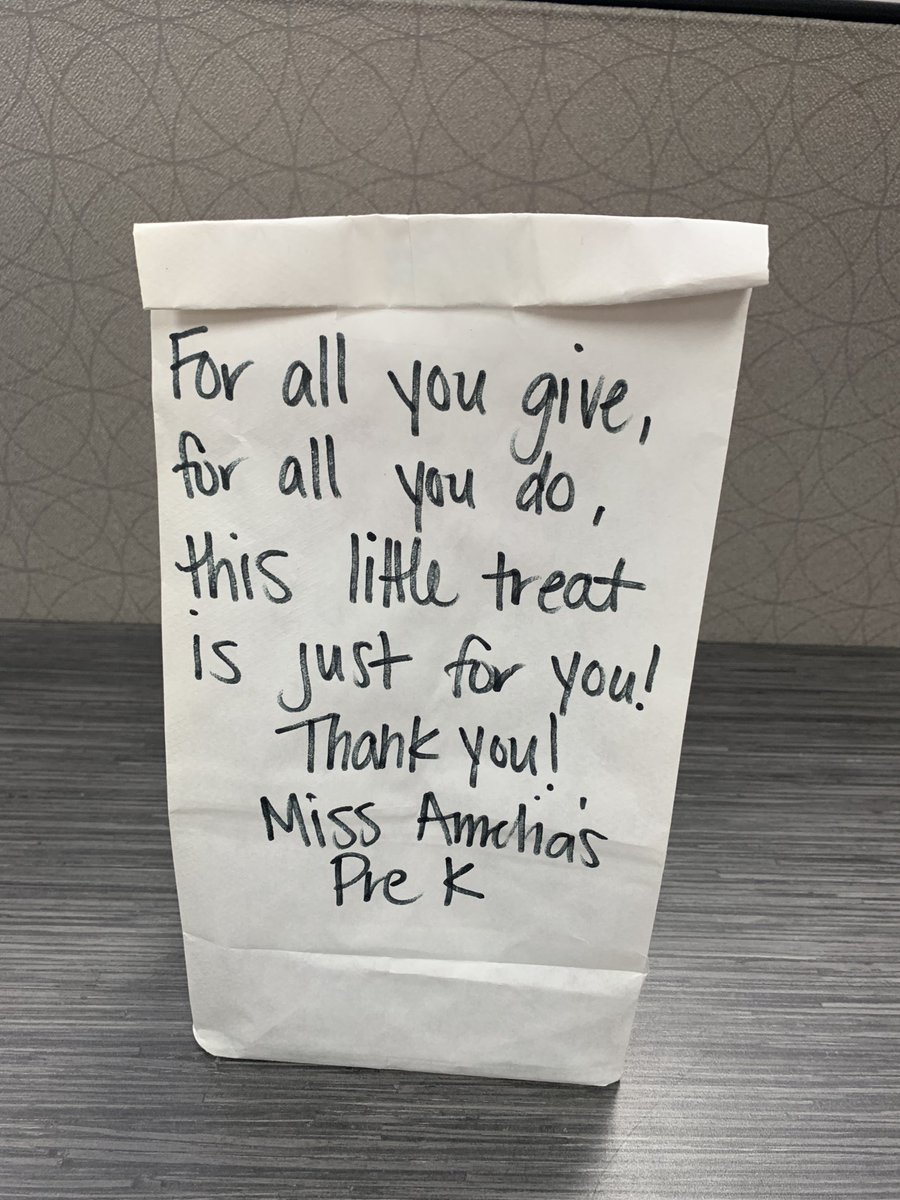 For all you give,
for all you do,
this little treat
is just for you!
Thank you!
Miss Amelia's
Pre K